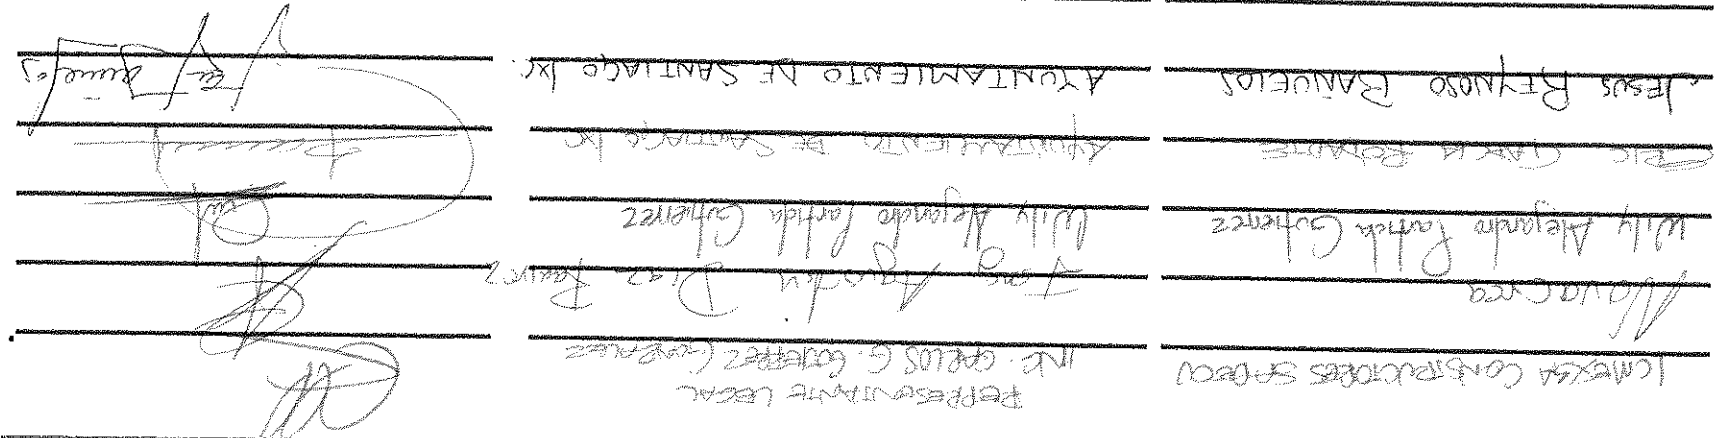 ICMEXSA CONSTRUCTORES SA DE CV REPRESENTANTE LEGAL
ING. CARLOS G. GUTIERREZ GONZALEZ
Novacrea Ing Agustin Diaz
Wily Alejandro Partida Gutierrez Wily Alejandro Partida Gutierrez
ERIC GARCIA AYUNTAMIENTO DE SANTIAGO IXC
JESUS REYNOSO BAÑUELOS AYUNTAMIENTO DE SANTIAGO IXC.